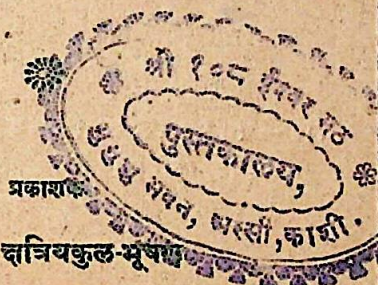 श्री १०८ ईश्वर मठ
पुस्तकालय,
मुमुक्षु भवन, अस्सी,काशी.
प्रकाशक
क्षत्रियकुल-भूषण